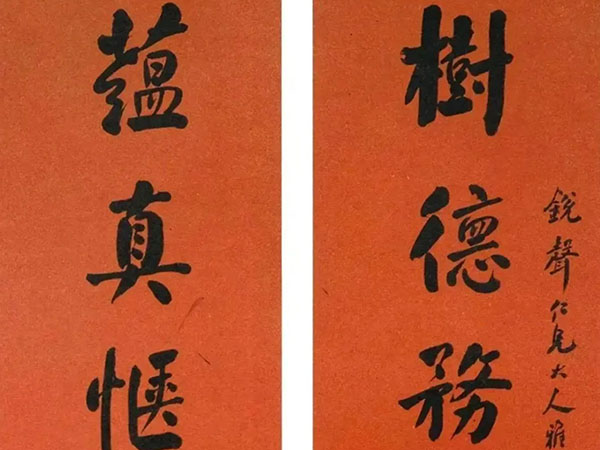 銳聲仁兄大人雅
樹德務
藴真愜